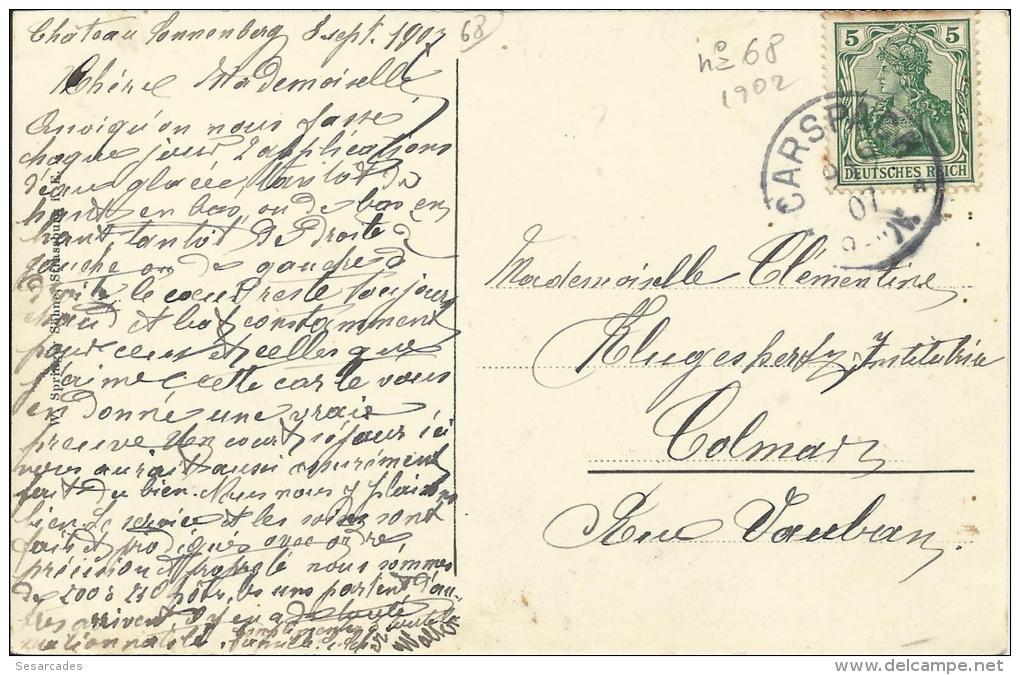 Château Sonnenberg 8 sept. 1907
68
Chère Mademoiselle
Quoiqu'on nous fasse
chaque jour 2 applications
d'eau glacée tantôt de
haut en bas, ou de bas en
haut tantôt de droite à
gauche ou de gauche à
droite, le coeur reste toujours
chaud et bat constamment
pour ceux et celles que
j'aime; cette carte vous
en donne une vraie
preuve. Un court séjour ici
vous aurait aussi assurément
fait du bien. Nous nous y plaisons
bien. Le service et les soins sont
faits et prodigués avec ordre
précision et propreté nous sommes
de 200 à 210 hôtes, les uns partent d'au-
tres arrivent. Il y en a de toute
nationalité.
W. Springer Söhne, Strassburg i. E.
no 68
1902
5 5
DEUTSCHES REICH
CARSPACH
07
Mademoiselle Clémentine
Klugesherz, Institutrice
Colmar
Rue Vauban
Sesarcades
delcampe.net